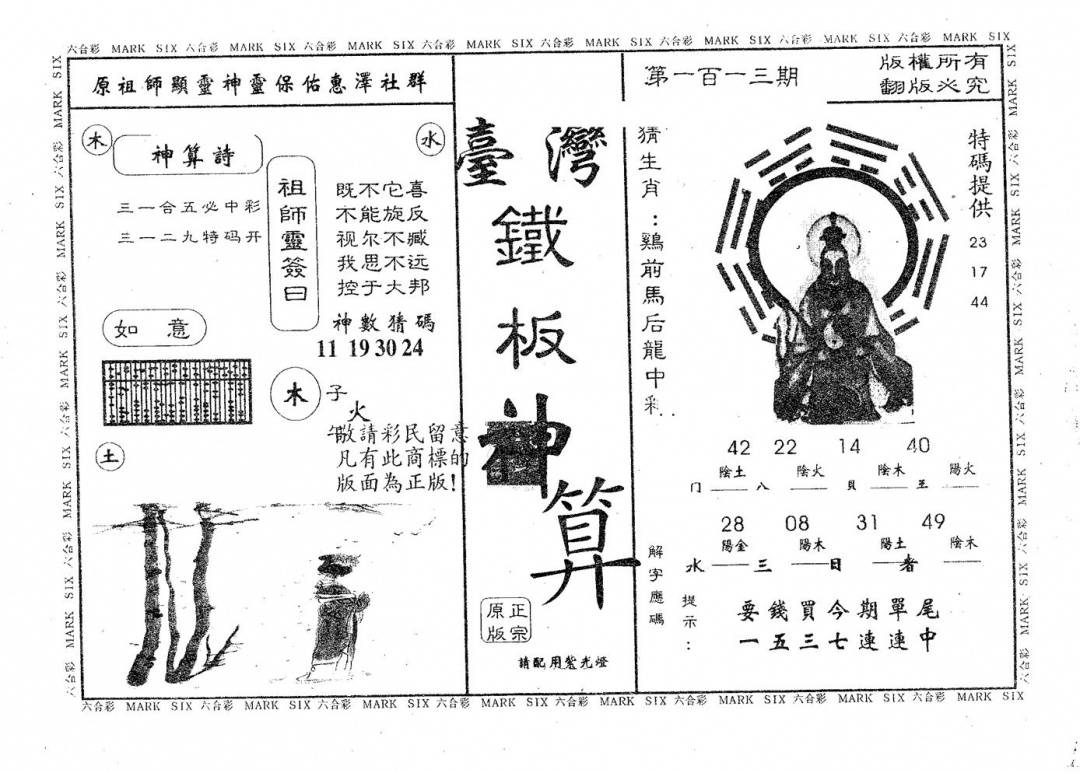 六合彩 MARK SIX 六合彩 MARK SIX 六合彩 MARK SIX 六合彩 MARK SIX 六合彩 MARK SIX 六合彩 MARK SIX 六合彩 MARK SIX 六合彩 MARK SIX
原祖師顯靈神靈保佑惠澤社群
木
神算詩
水
三一合五必中彩
三一二九特码开
祖師靈簽曰
既不它喜
不能旋反
视尔不臧
我思不远
控于大邦
神數猜碼
11 19 30 24
如意
木
子
火
午
敬請彩民留意
凡有此商標的
版面為正版!
土
臺灣
鐵
板
神
算
正宗
原版
請配用紫光燈
第一百一十三期
版權所有
翻版必究
猜生肖:鷄前馬后龍中彩..
特碼提供
23
17
44
42 22 14 40
陰土 陰火 陰木 陽火
门 八 貝 王
28 08 31 49
陽金 陽木 陽土 陰木
水 三 日 者
解字應碼
提示:
要錢買今期單尾
一五三七連連中
六合彩 MARK SIX 六合彩 MARK SIX 六合彩 MARK SIX 六合彩 MARK SIX 六合彩 MARK SIX 六合彩 MARK SIX 六合彩 MARK SIX 六合彩 MARK SIX